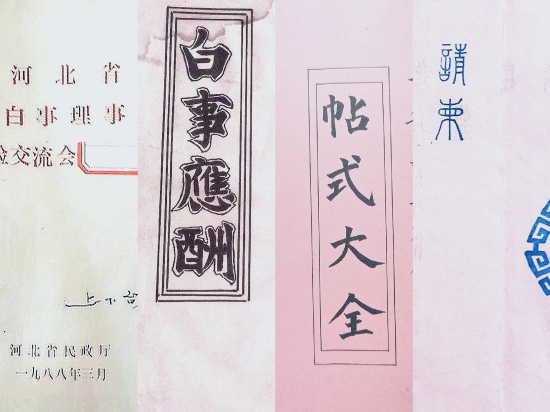 河北省
白事理事
验交流会
上下台
河北省民政厅
一九八八年三月
白事應酬
帖式大全
請柬